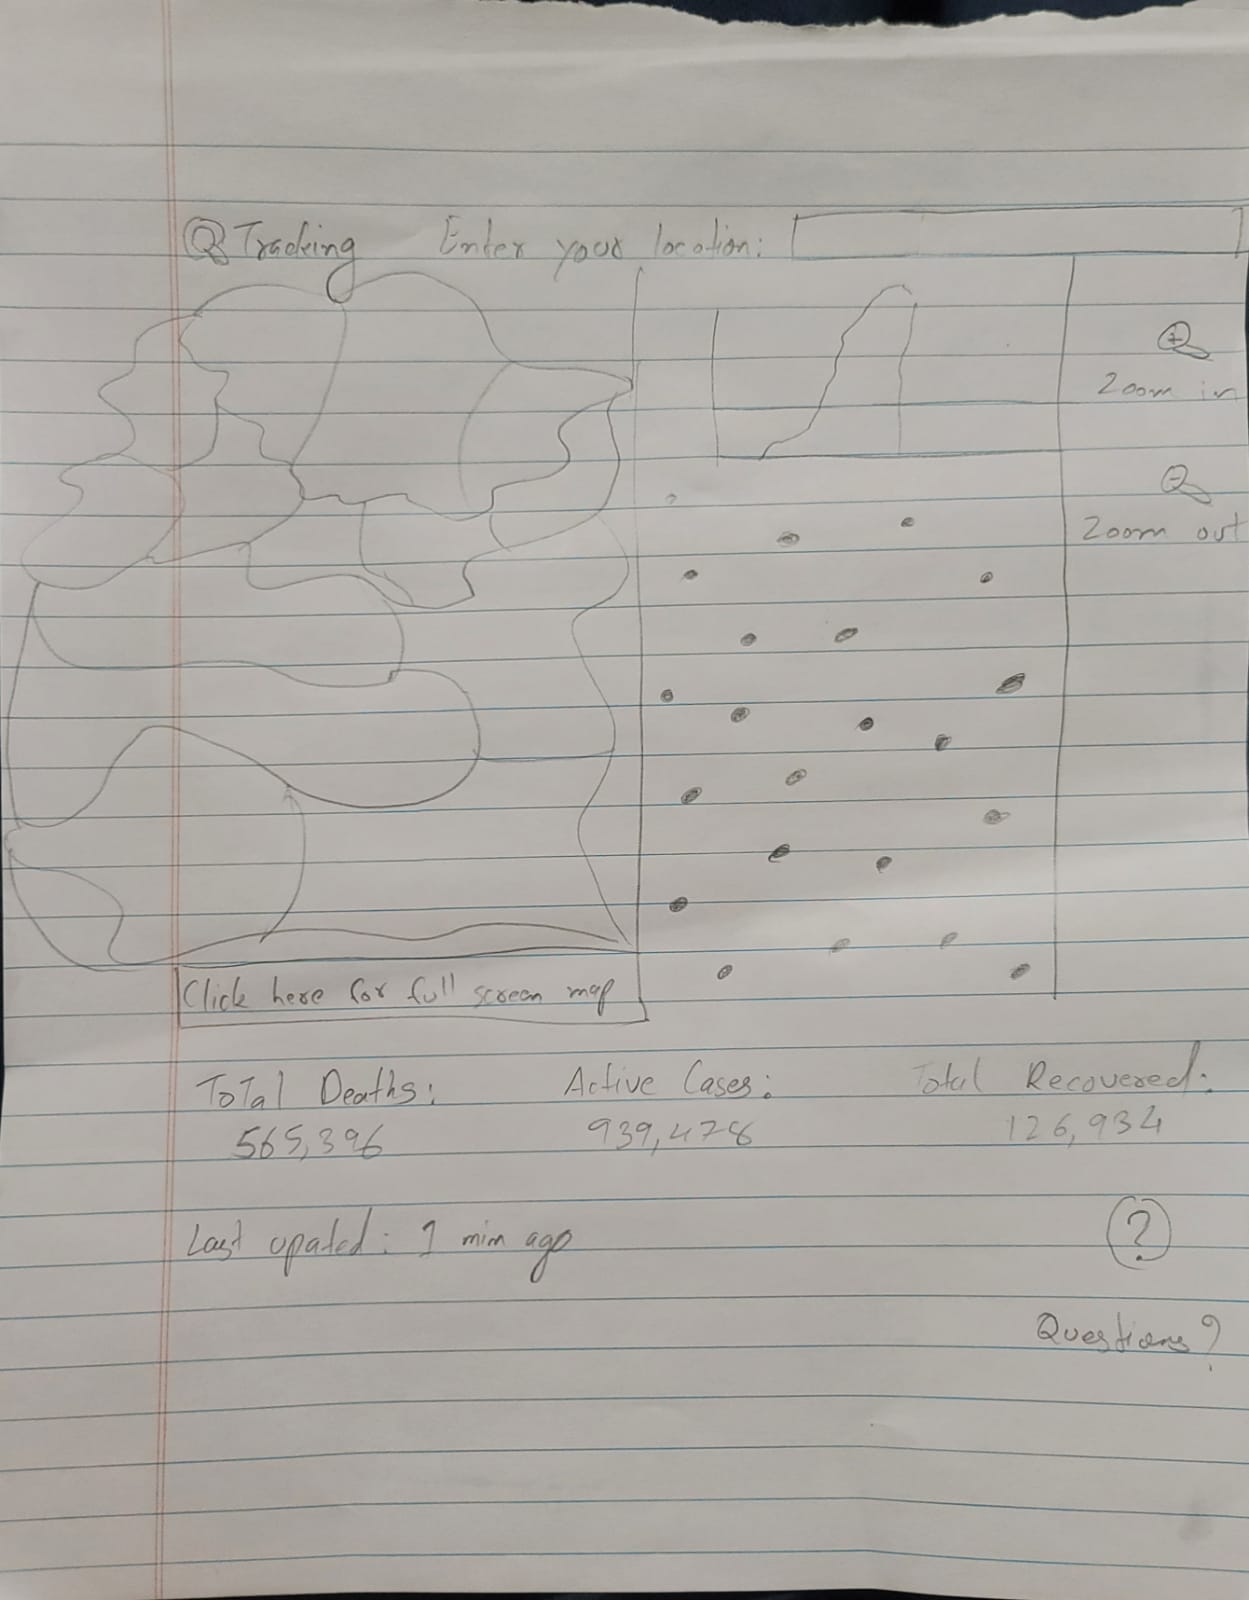 Q Tracking Enter your location:
+
Zoom in
-
Zoom out
Click here for full screen map
Total Deaths: Active Cases: Total Recovered:
565,396 939,478 126,934
Last upated: 1 min ago
?
Questions?